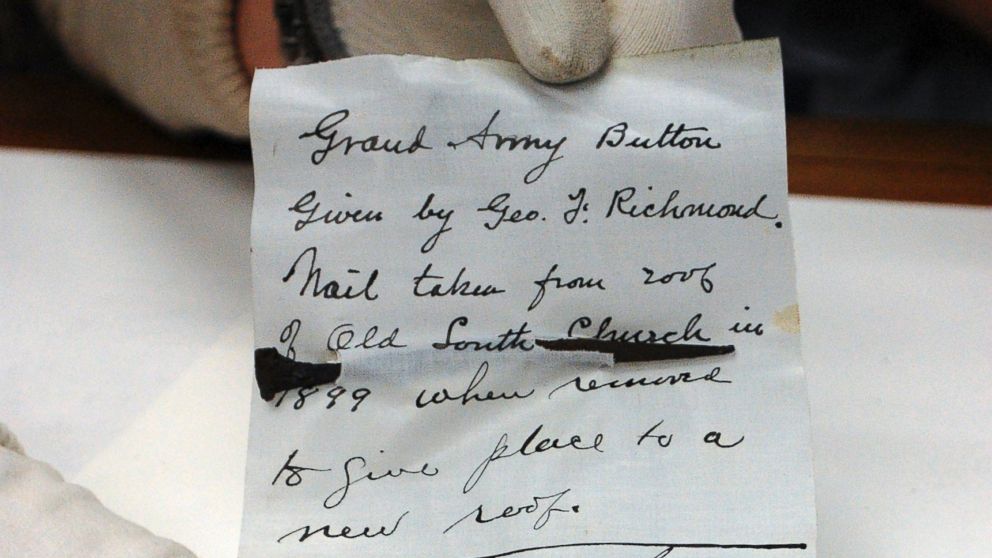 Grand Army Button
Given by Geo. F. Richmond.
Nail taken from roof
of Old South Church in
1899 when removed
to give place to a
new roof.